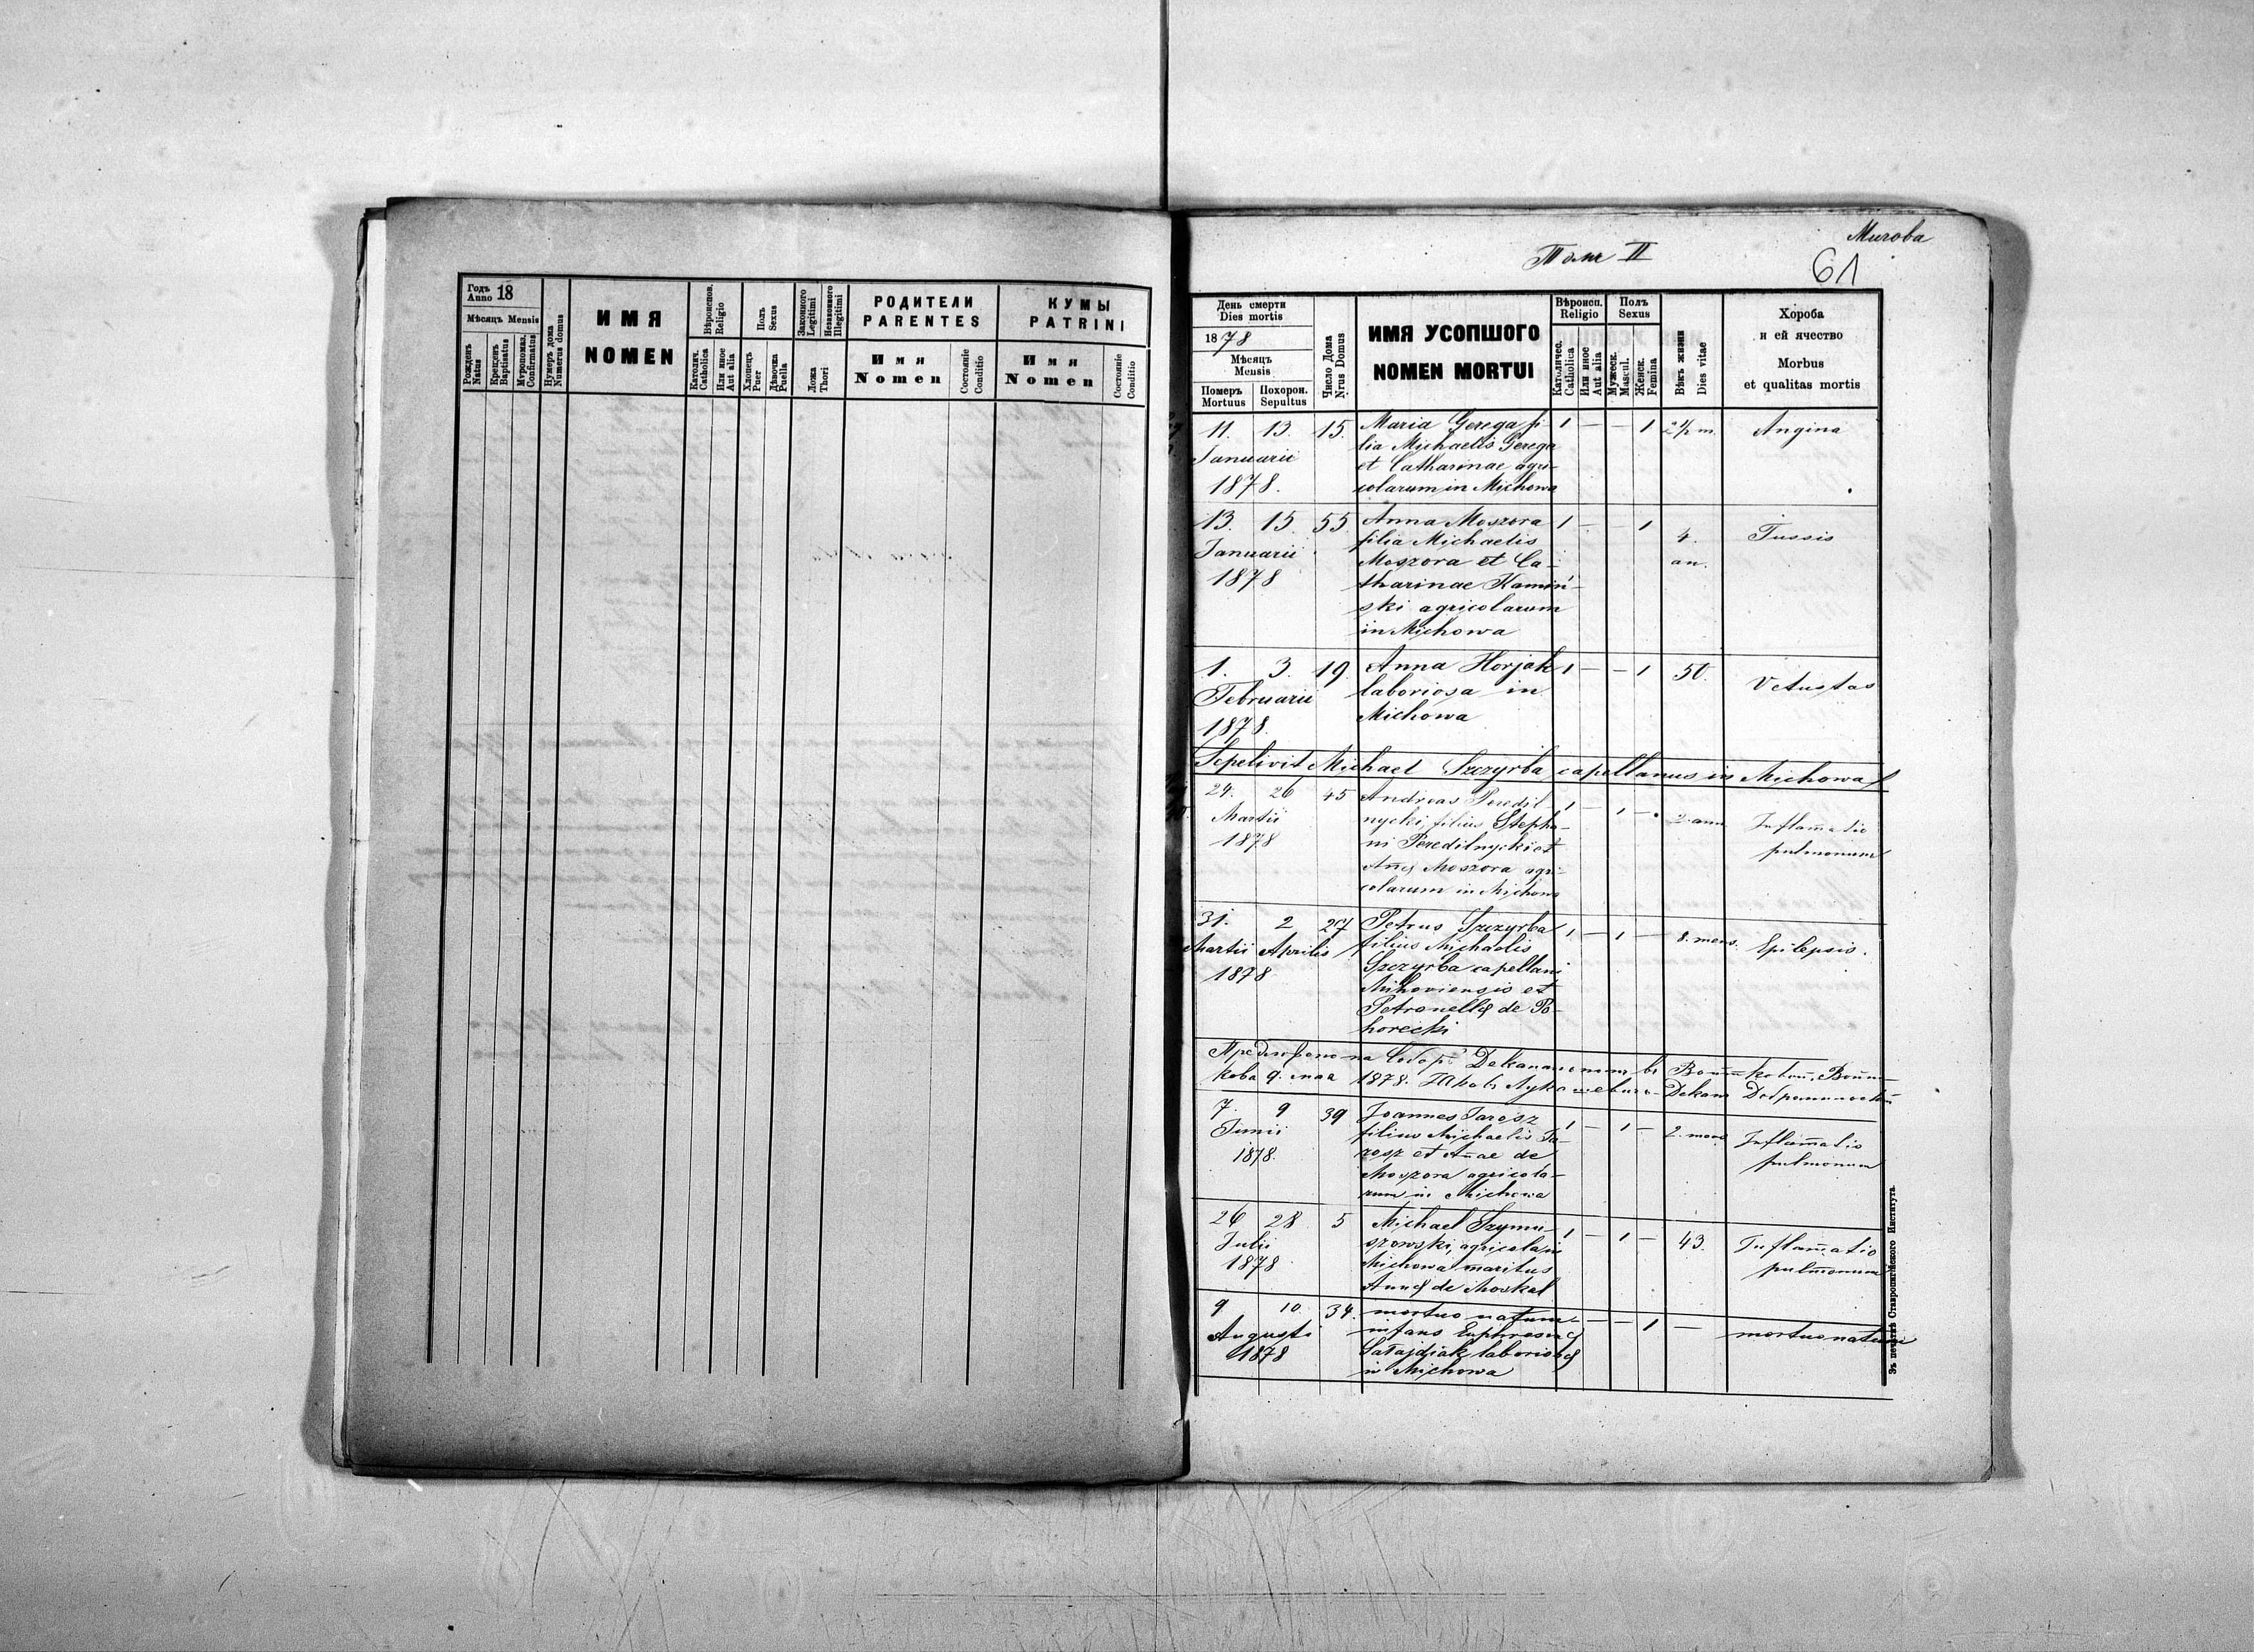 Годъ Anno 18
Мѣсяцъ Mensis
Рожденъ Natus
Крещенъ Baptisatus
Мѵропомаз. Confirmatus
Нумеръ дома Numerus domus
ИМЯ
NOMEN
Вѣроиспов. Religio
Католич. Catholica
Или иное Aut alia
Полъ Sexus
Хлопець Puer
Дѣвочка Puella
Законного Legitimi
Незаконного Illegitimi
Ложа Thori
РОДИТЕЛИ
PARENTES
Имя
Nomen
Состояніе Conditio
КУМЫ
PATRINI
Имя
Nomen
Состояніе Conditio
Мигова
Томъ II
61
День смерти
Dies mortis
1878
Мѣсяцъ
Mensis
Померъ Mortuus
Похорон. Sepultus
Число Дома Nrus Domus
ИМЯ УСОПШОГО
NOMEN MORTUI
Вѣроисп. Religio
Католичес. Catholica
Или иное Aut alia
Полъ Sexus
Мужеск. Mascul.
Женск. Femina
Вѣкъ жизни Dies vitae
Хороба
и ей ячество
Morbus
et qualitas mortis
11. 13. 15. Maria Gerega fi- 1 — — 1 2 1/2 m. Angina
Januarii lia Michaelis Gerega
et Catharinae agri-
1878. colarum in Michowa
13. 15. 55. Anna Moszora 1 — — 1 4. Tussis
filia Michaelis
Januarii Moszora et Ca- an.
1878 tharinae Kamiń-
ski agricolarum
in Michowa
1. 3. 19. Anna Horjak 1 — — 1 50. Vetustas
Februarii laboriosa in
1878. Michowa
Sepelivit Michael Szczyrba capellanus in Michowa
24. 26 45 Andreas Peredil- 1 — 1 — 2. ann. Inflam̄atio
Martii nycki, filius Stepha- pulmonum
1878 ni Peredilnycki et
Ann̄ę Moszora agri-
colarum in Michowa
31. 2 27 Petrus Szczyrba 1 — 1 — 8. mens. Epilepsis.
Martii Aprilis filius Michaelis
1878 Szczyrba capellani
Mihoviensis et
Petronellę de Po-
horecki
Предложено на Соборѣ Деканальномъ въ
кова 9. мая 1878. Деканъ
7. 9 39 Joannes Jarosz 1 — 1 — 2. mens Inflam̄atio
Junii filius Michaelis Ja- pulmonum
1878. rosz et An̄ae de
Moszora agricola-
rum in Michowa
26 28 5 Michael Szymu- 1 — 1 — 43. Inflam̄atio
Julii szowski, agricola in pulmonum
1878 Michowa maritus
Annę de Moskal
9 10 34. mortuo natum — — — 1 — mortuo natum
Augusti infans Euphrosinę
1878 Sałajdiak laboriosę
in Michowa
Зъ печатнѣ Ставропигійского Института.